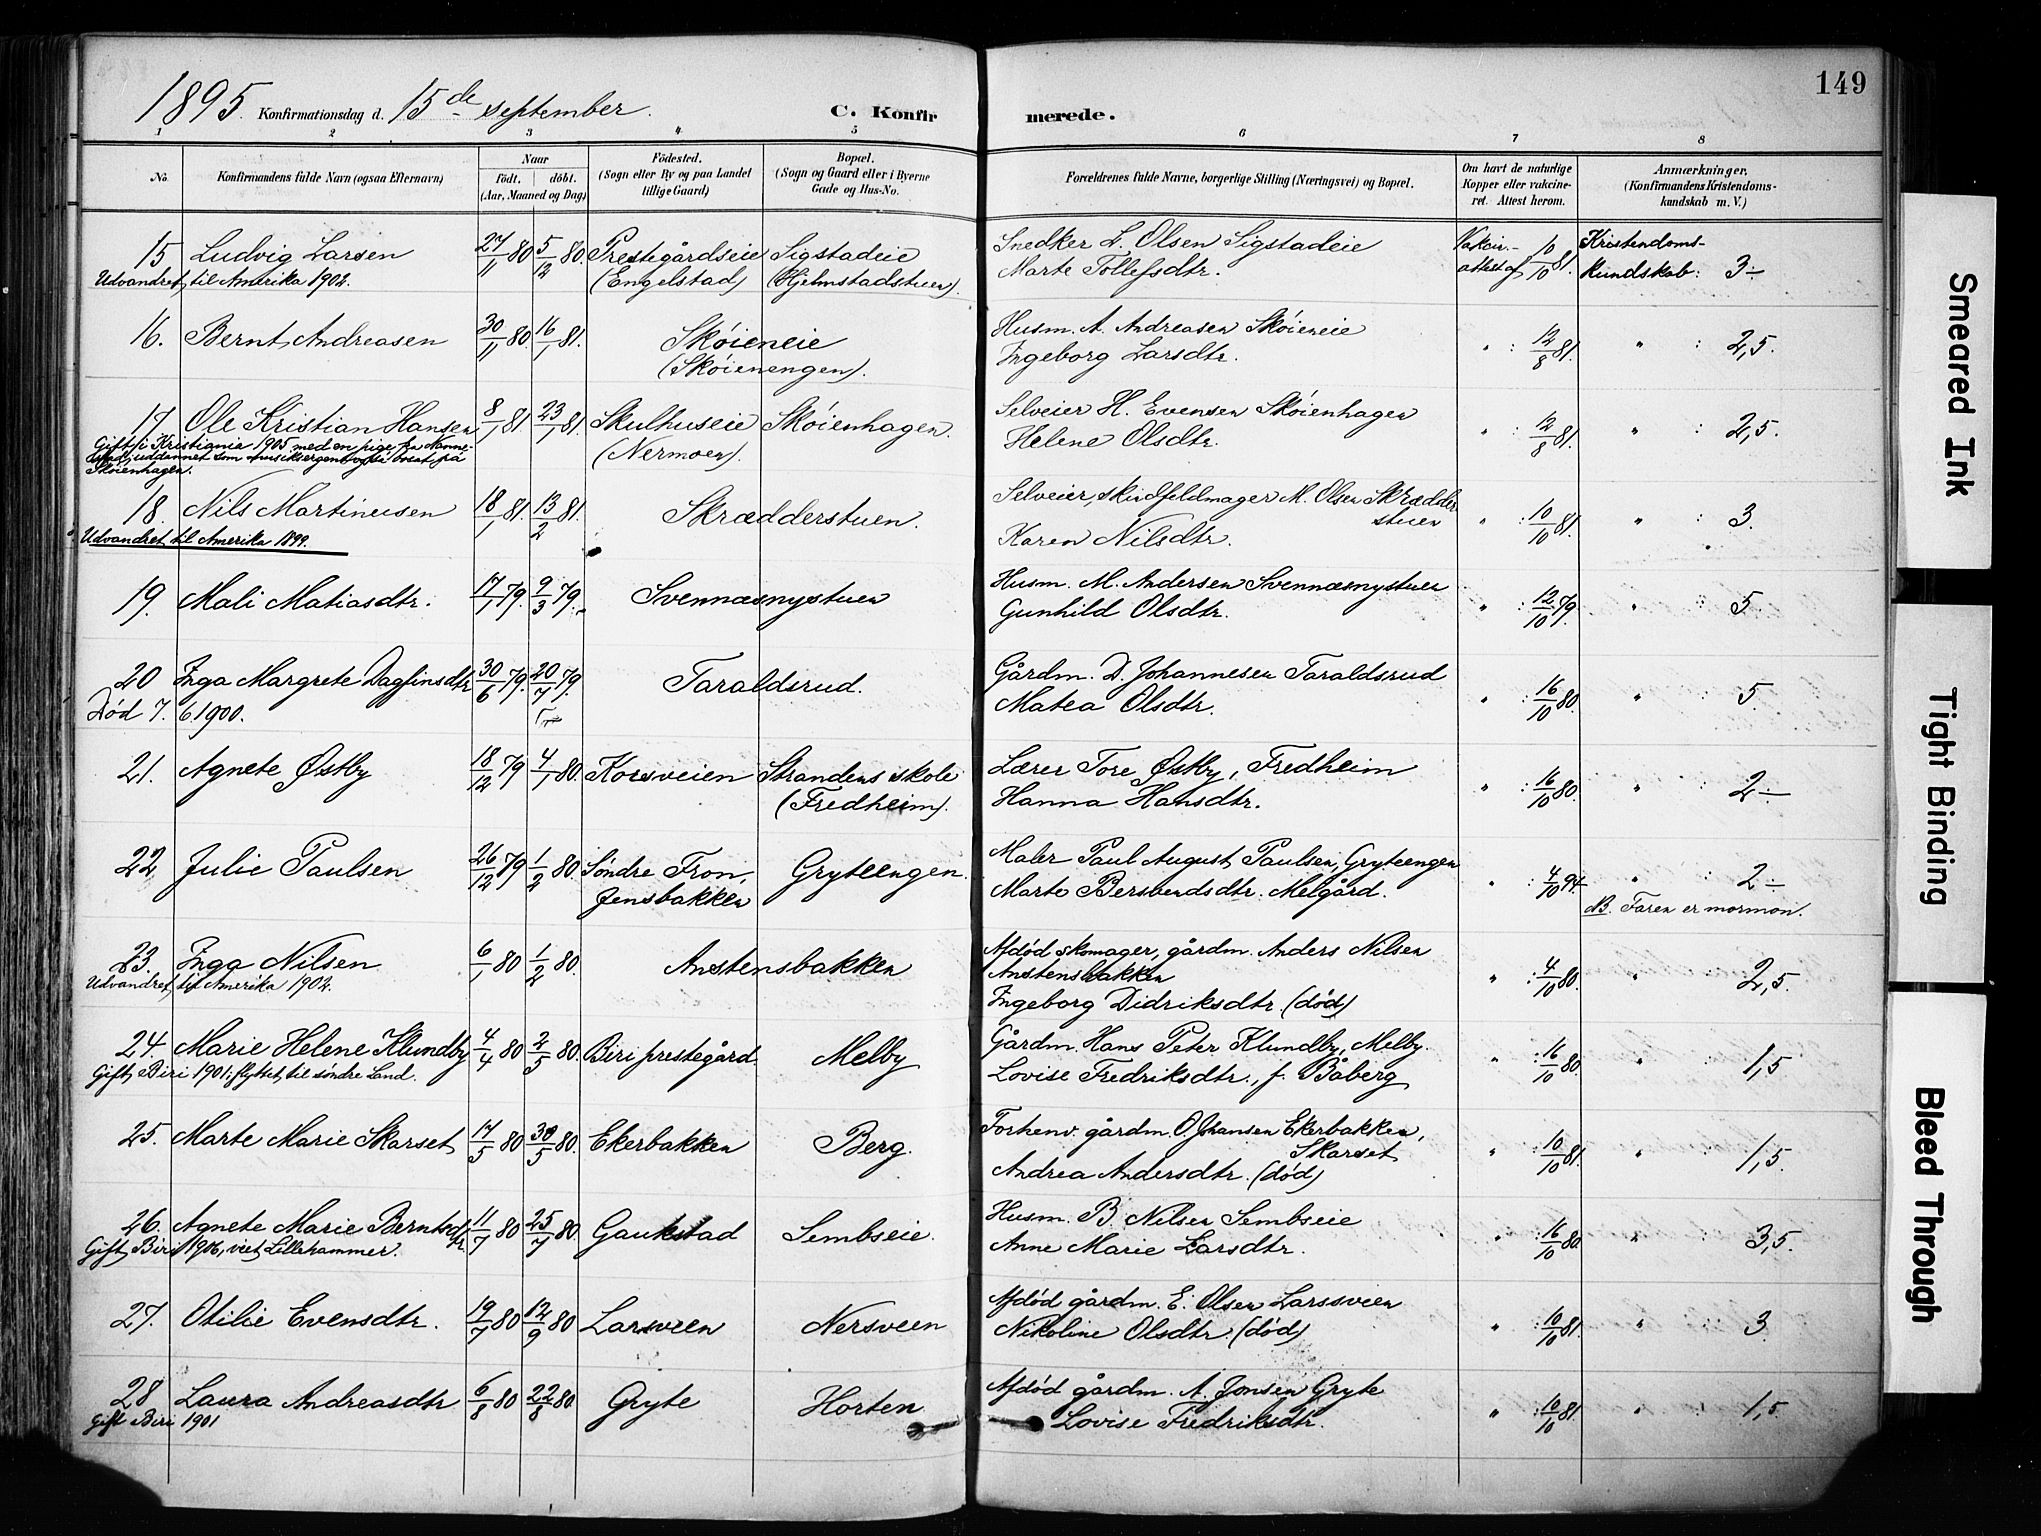 149
1895. Konfirmationsdag d. 15de september. C. Konfir merede.
1 2 3 4 5 6 7 8
No. Konfirmandens fulde Navn (ogsaa Efternavn) Naar født. døbt. (Aar, Maaned og Dag) Fødested. (Sogn eller By og paa Landet tillige Gaard) Bopæl. (Sogn og Gaard eller i Byerne Gade og Hus-No. Forældrenes fulde Navne, borgerlige Stilling (Næringsvei) og Bopæl. Om havt de naturlige Kopper eller vakcineret. Attest herom. Anmærkninger. (Konfirmandens Kristendomskundskab m. V.)
15 Ludvig Larsen 27/11 80 5/12 80. Prestegårdseie Sigstadeie Snedker L. Olsen Sigstadeie Vakcin.- 10/10 81. Kristendoms-
Udvandret til Amerika 1902. (Engelstad) (Hjelmstadstuen). Marte Tollefsdtr. attest af kundskab: 3÷
16. Bernt Andreasen 30/11 80. 16/1 81. Skøieneie Husm. A. Andreasen Skøieneie " : 12/8 81. " : 2,5.
(Skøienengen). Ingeborg Larsdtr.
17 Ole Kristian Hansen 8/1 81. 23/1 81. Skulhuseie Skøienhagen. Selveier H. Evensen Skøienhagen " : 12/8 81. " : 2,5.
Gift i Kristiania 1905 med en pige fra Nanne-
stad; uddannet som musiksergent og bosat på (Nermoen). Helene Olsdtr.
Skøienhagen.
18. Nils Martinusen 18/1 81. 13/2 81. Skrædderstuen. Selveier, skindfeldmager M. Olsen Skrædder
stuen " : 10/10 81. " : 3.
Udvandret til Amerika 1899. Karen Nilsdtr.
19. Mali Matiasdtr. 17/1 79. 9/3 79. Svennæsnystuen Husm. M. Andersen Svennæsnystuen " : 12/10 79. " : 5.
Gunhild Olsdtr.
20 Inga Margrete Dagfinsdtr 30/6 79. 20/7 79. Taraldsrud. Gårdm. D. Johannesen Taraldsrud " : 16/10 80. " 5.
Død 7. 6. 1900. Matea Olsdtr.
21. Agnete Østby 18/12 79 4/1 80. Korsveien Strandens skole Lærer Tore Østby, Fredheim " : 16/10 80. " 2÷
(Fredheim). Hanna Hansdtr.
22. Julie Paulsen 26/12 79 1/2 80. Søndre Fron, Gryteengen. Maler Paul August Paulsen, Gryteengen " : 4/10 94. " : 2÷
Jensbakken Marte Bersvendsdtr. Melgård. NB. Faren er mormon.
23. Inga Nilsen 6/1 80 1/2 80. Anstensbakken Afdød skomager, gårdm. Anders Nilsen
Udvandret til Amerika 1902. Anstensbakken " : 4/10 80. " : 2,5.
Ingeborg Didriksdtr. (død)
24. Marie Helene Klundby 4/4 80 2/5 80. Biri prestegård. Melby Gårdm. Hans Peter Klundby, Melby. " : 16/10 80. " : 1,5
Gift, Biri 1901; flyttet til søndre Land. Lovise Fredriksdtr., f. Båberg
25. Marte Marie Skarset 17/5 80 30/5 80. Ekerbakken Berg. Forhenv. gårdm. O. Johansen Ekerbakken,
Skarset " : 10/10 81. " : 1,5.
Andrea Andersdtr. (død)
26. Agnete Marie Berntsdtr. 11/7 80 25/7 80. Gaukstad Sembseie. Husm. B. Nilsen Sembseie " : 16/10 80. " : 3,5.
Gift, Biri 1906, viet Lillehammer. Anne Marie Larsdtr.
27. Otilie Evensdtr. 19/7 80 12/9 80 Larsveen Nersveen Afdød gårdm. E. Olsen Larssveen " : 10/10 81. " : 3
Nikoline Olsdtr. (død)
28 Laura Andreasdtr 6/8 80 22/8 80. Gryte Horten Afdød gårdm. A. Jonsen Gryte " : 10/10 81. " : 1,5.
Gift Biri 1901 Lovise Fredriksdtr.
Smeared Ink
Tight Binding
Bleed Through